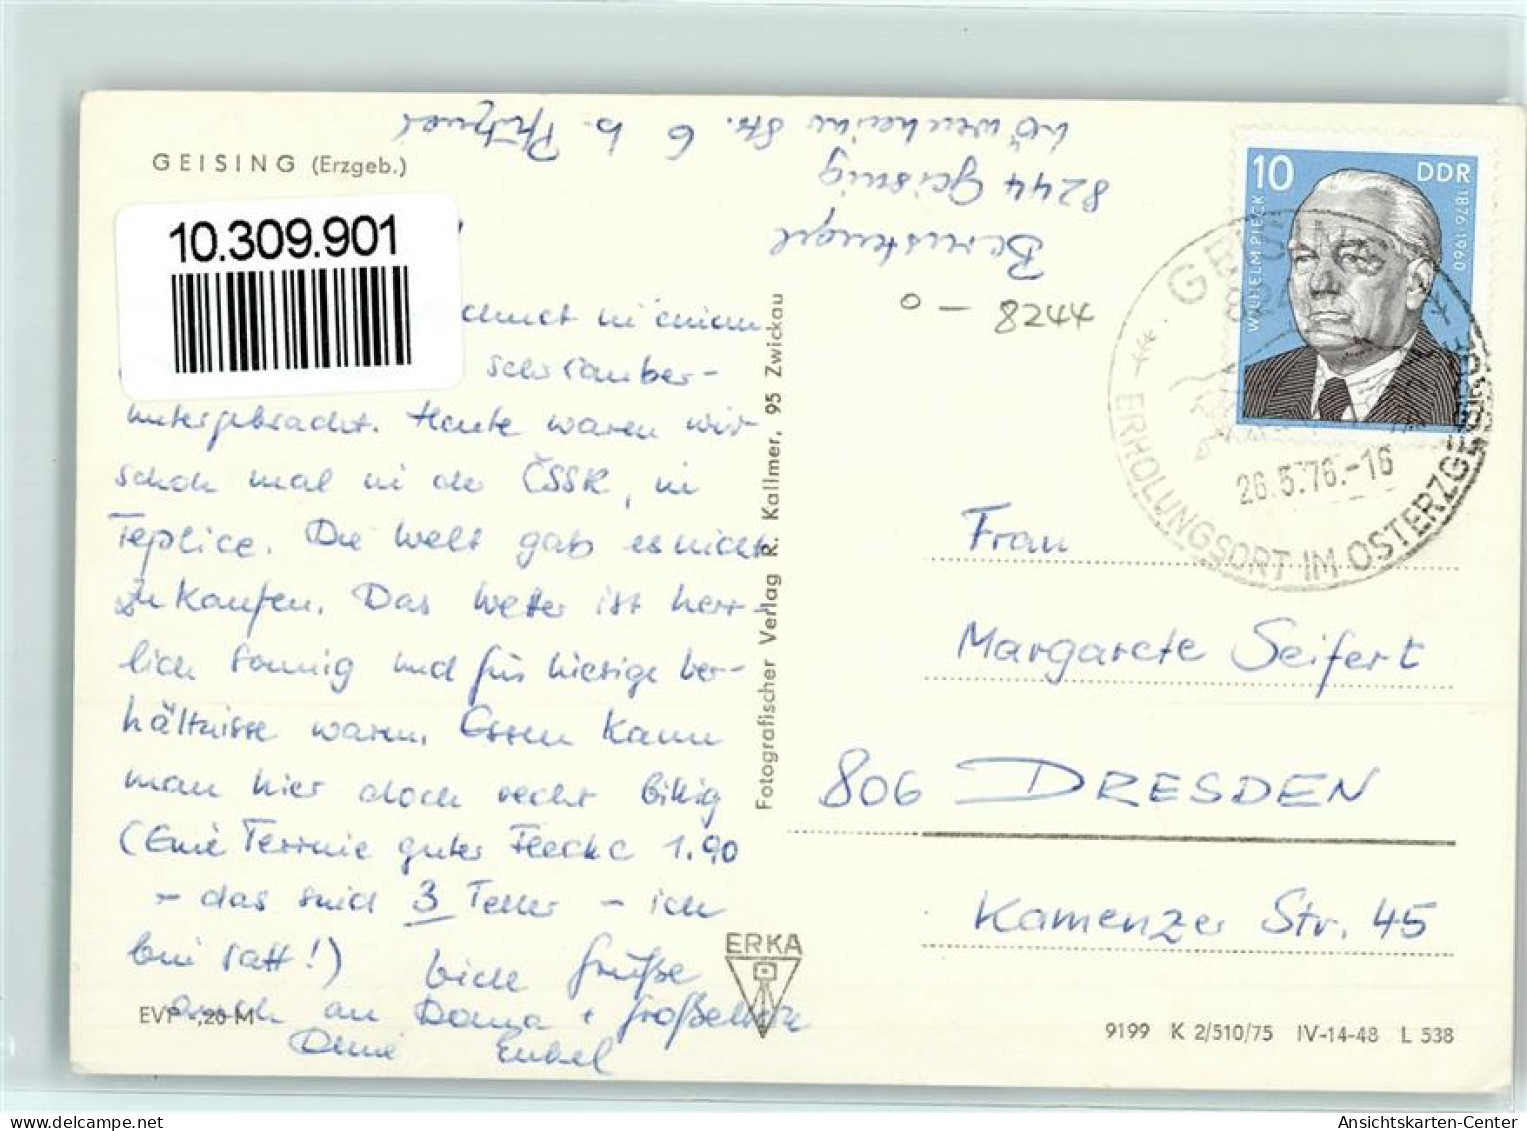 GEISING (Erzgeb.)
10.309.901
8244 Geising
Str. 6 b.
0 - 8244
10 DDR
WILHELM PIECK
1876-1960
GEISING
ERHOLUNGSORT IM OSTERZGEBIRGE
26.5.76.-16
in einem
untergebracht. Heute waren wir
schon mal in der ČSSR, in
Teplice. Die Welt gab es nicht
zu kaufen. Das Wetter ist herr-
lich sonnig und für hiesige Ver-
hältnisse warm. Essen kann
man hier doch recht billig
(Eine Terrine guter Flecke 1.90
- das sind 3 Teller - ich
bin satt!) Viele Grüße
auch an Doma + Großeltern
Deine Enkel
Fotografischer Verlag R. Kallmer, 95 Zwickau
Frau
Margarete Seifert
806 DRESDEN
Kamenzer Str. 45
ERKA
EVP -,20 M
9199 K 2/510/75 IV-14-48 L 538
Ansichtskarten-Center